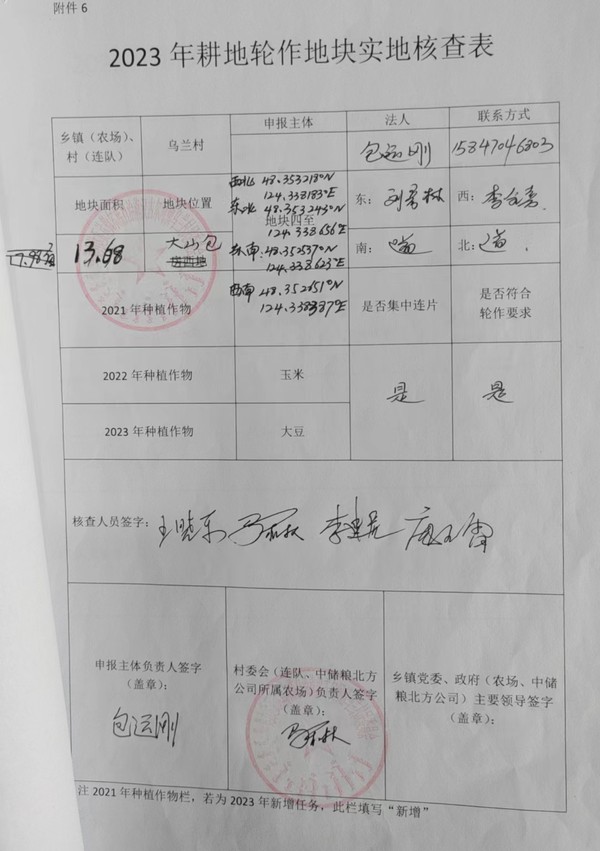 附件 6
2023 年耕地轮作地块实地核查表
乡镇（农场）、村（连队）
乌兰村
申报主体
法人
联系方式
包运刚
15847046803
地块面积
地块位置
地块四至
西北 48.353218°N
124.338183°E
东北 48.353243°N
124.338656°E
东南: 48.352537°N
124.338623°E
西南 48.352651°N
124.338387°E
东:
西:
南: 道
北: 道
13.68
大山包
2021 年种植作物
是否集中连片
是否符合轮作要求
2022 年种植作物
玉米
是
是
2023 年种植作物
大豆
核查人员签字:
王晓东
申报主体负责人签字
（盖章）:
包运刚
村委会（连队、中储粮北方
公司所属农场）负责人签字
（盖章）:
乡镇党委、政府（农场、中储
粮北方公司）主要领导签字
（盖章）:
注 2021 年种植作物栏，若为 2023 年新增任务，此栏填写“新增”